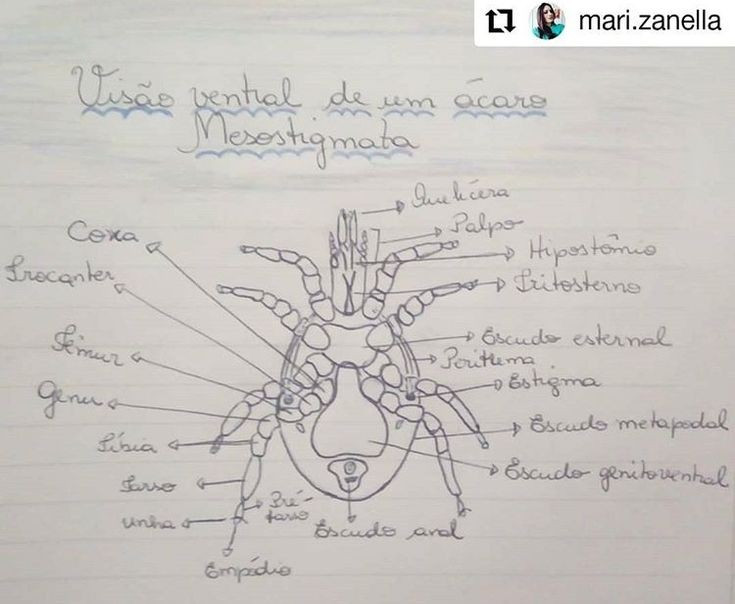 mari.zanella
Visão ventral de um ácaro
Mesostigmata
Quelícera
Palpo
Hipostômio
Tritosterno
Escudo esternal
Peritrema
Estigma
Escudo metapodal
Escudo genitoventral
Escudo anal
Coxa
Trocanter
Fêmur
Genu
Tíbia
Tarso
Pré-
tarso
unha
Empódio